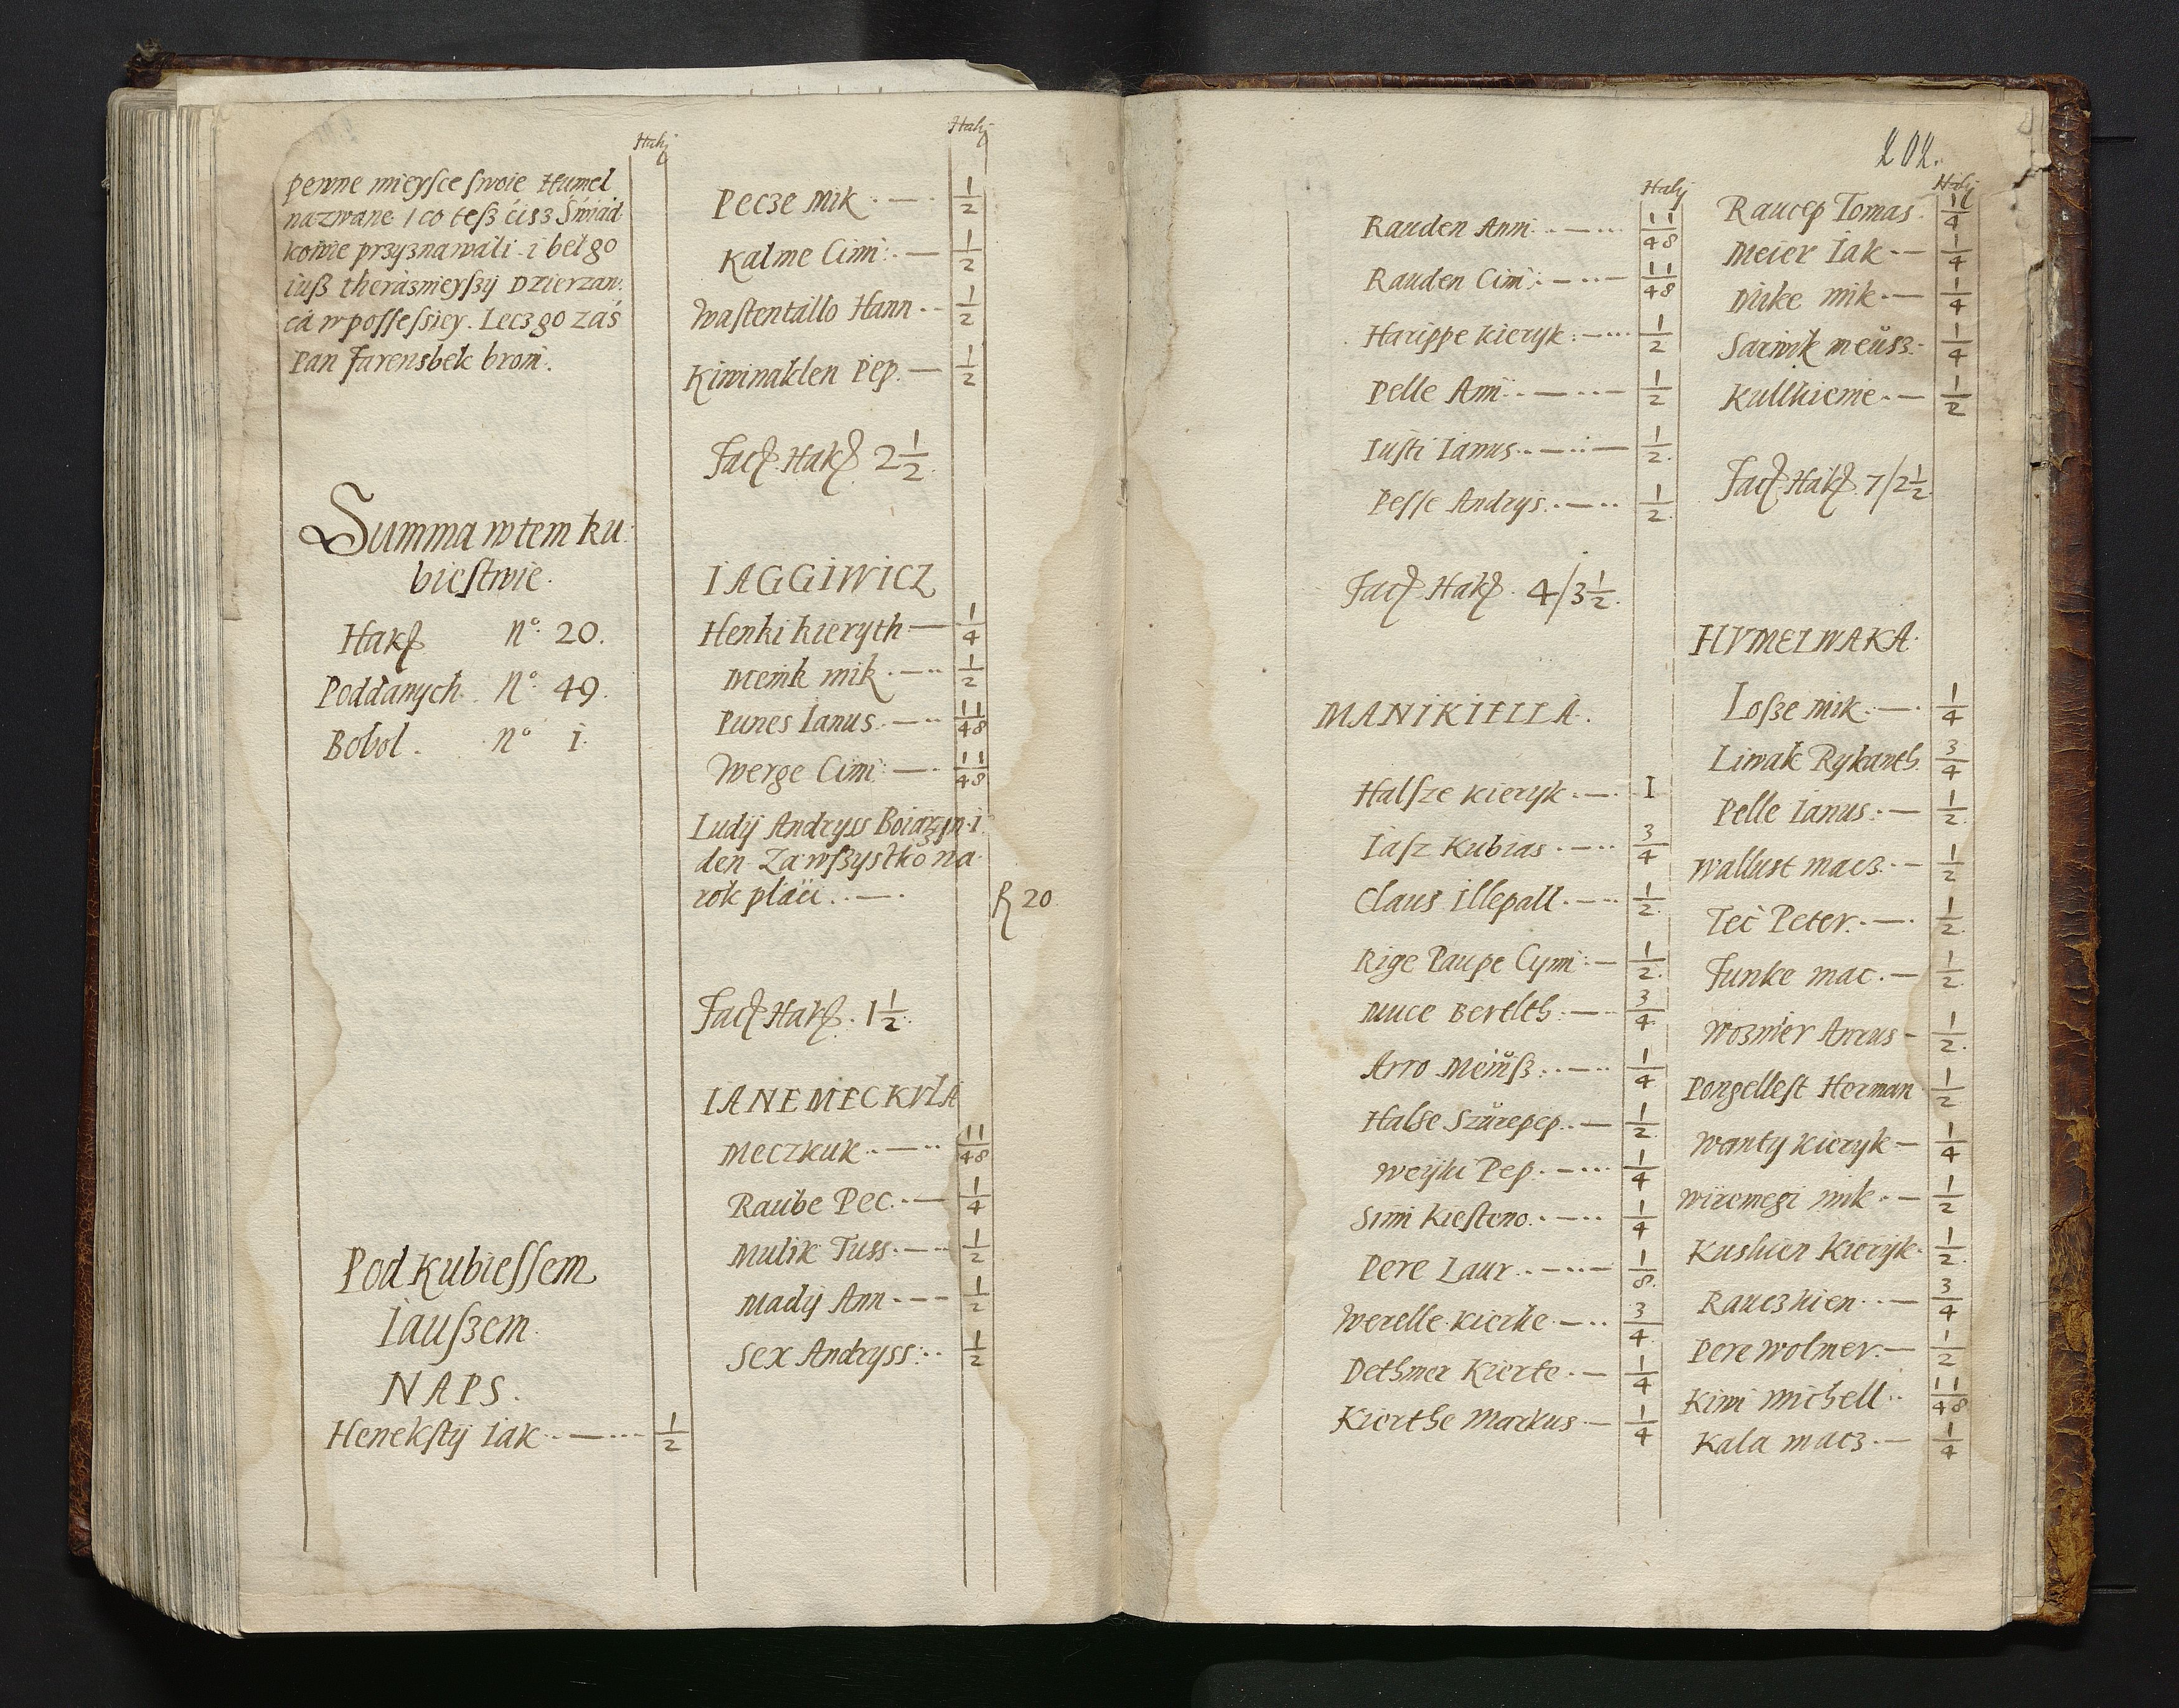 Hakj
penne mieysce swoie Humel
nazwane i co tesz cisz Swiad
kowie przyznawali. i bel go
iusz therasnieyszy Dzierzaw:
ca w possessiey. Lecz go zas
Pan Farensbek broni.
Summa w tem ku
biestwie.
Hakſ N° 20.
Poddanych N° 49.
Bobol. N° i.
Pod kubiessem
Iauszem
NAPS.
Henekstij Iak 1/2
Hakj
Pecze Mik 1/2
Kalme Cimi 1/2
Wastentallo Hann 1/2
Kiwinaklen Pep. 1/2
Facſ. Hakſ 2 1/2.
IAGGIWICZ
Henki kieryth 1/4
Menk mik 1/2
Punes Ianus 1/4 1/8
Werge Cimi 1/4 1/8
Ludij Andryss Boiarzyn i
den Za wszystko na
rok placi R 20
Facſ Hakſ. 1 1/2.
IANEMECKVLA
Meczkuk 1/4 1/8
Raube Pec. 1/4
Mulik Tuss. 1/2
Madij Ann 1/2
Sex Andryss 1/2
202.
Hakj
Rauden Anni 1/4 1/8
Rauden Cimi 1/4 1/8
Harippe kieryk 1/2
Pelle Anni 1/2
Iusti Ianus 1/2
Pesse Andrys 1/2
Facſ Hakſ. 4/3 1/2.
MANIKIELLA.
Halsze kieryk I
Iasz Kubias 3/4
Claus Illepall 1/2
Rige Paupe Cymi 1/2
Muce Bertlth 3/4
Arro Meinusz 1/4
Halse Szurepep 1/2
Weyki Pep. 1/4
Simi Kiesteno 1/4
Pere Laur 1/8
Werelle Kierke 3/4
Dethmer Kierte 1/4
Kierthe Markus 1/4
Hakj
Raucep Tomas 1/4
Meier Iak 1/4
Mike mik 1/4
Sarwik meusz 1/4
Kullkieme 1/2
Facſ Hakſ. 7/2 1/2.
HVMELWAKA.
Losze mik 1/4
Liwak Rykanth. 3/4
Pelle Ianus 1/2
Wallust macz. 1/2
Tec Peter. 1/2
Funke mac. 1/2
Wozmer Anrus 1/2
Pongellest Herman 1/2
Wanty kieryk 1/4
Wiremegi mik 1/2
Kushien Kieryk 1/2
Rauczkien 3/4
Pere Wolmer 1/2
Kimi Michell 1/4 1/8
Kala macz 1/4